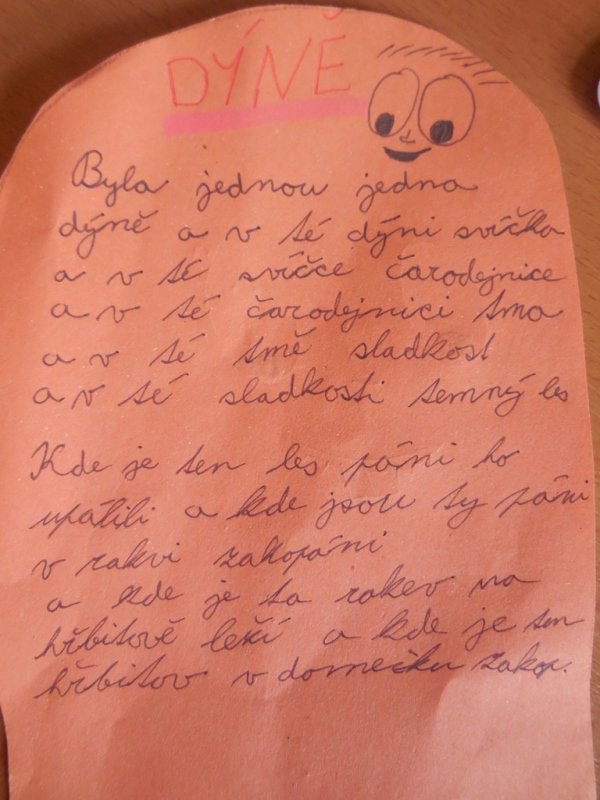 DÝNĚ
Byla jednou jedna
dýně a v té dýni svíčka
a v té svíčce čarodejnice
a v té čarodejnici tma
a v té tmě sladkost
a v té sladkosti temný les
Kde je ten les páni ho
upálili a kde jsou ty páni
v rakvi zakopáni
a kde je ta rakev na
hřbitově leží a kde je ten
hřbitov v domečku zakop.